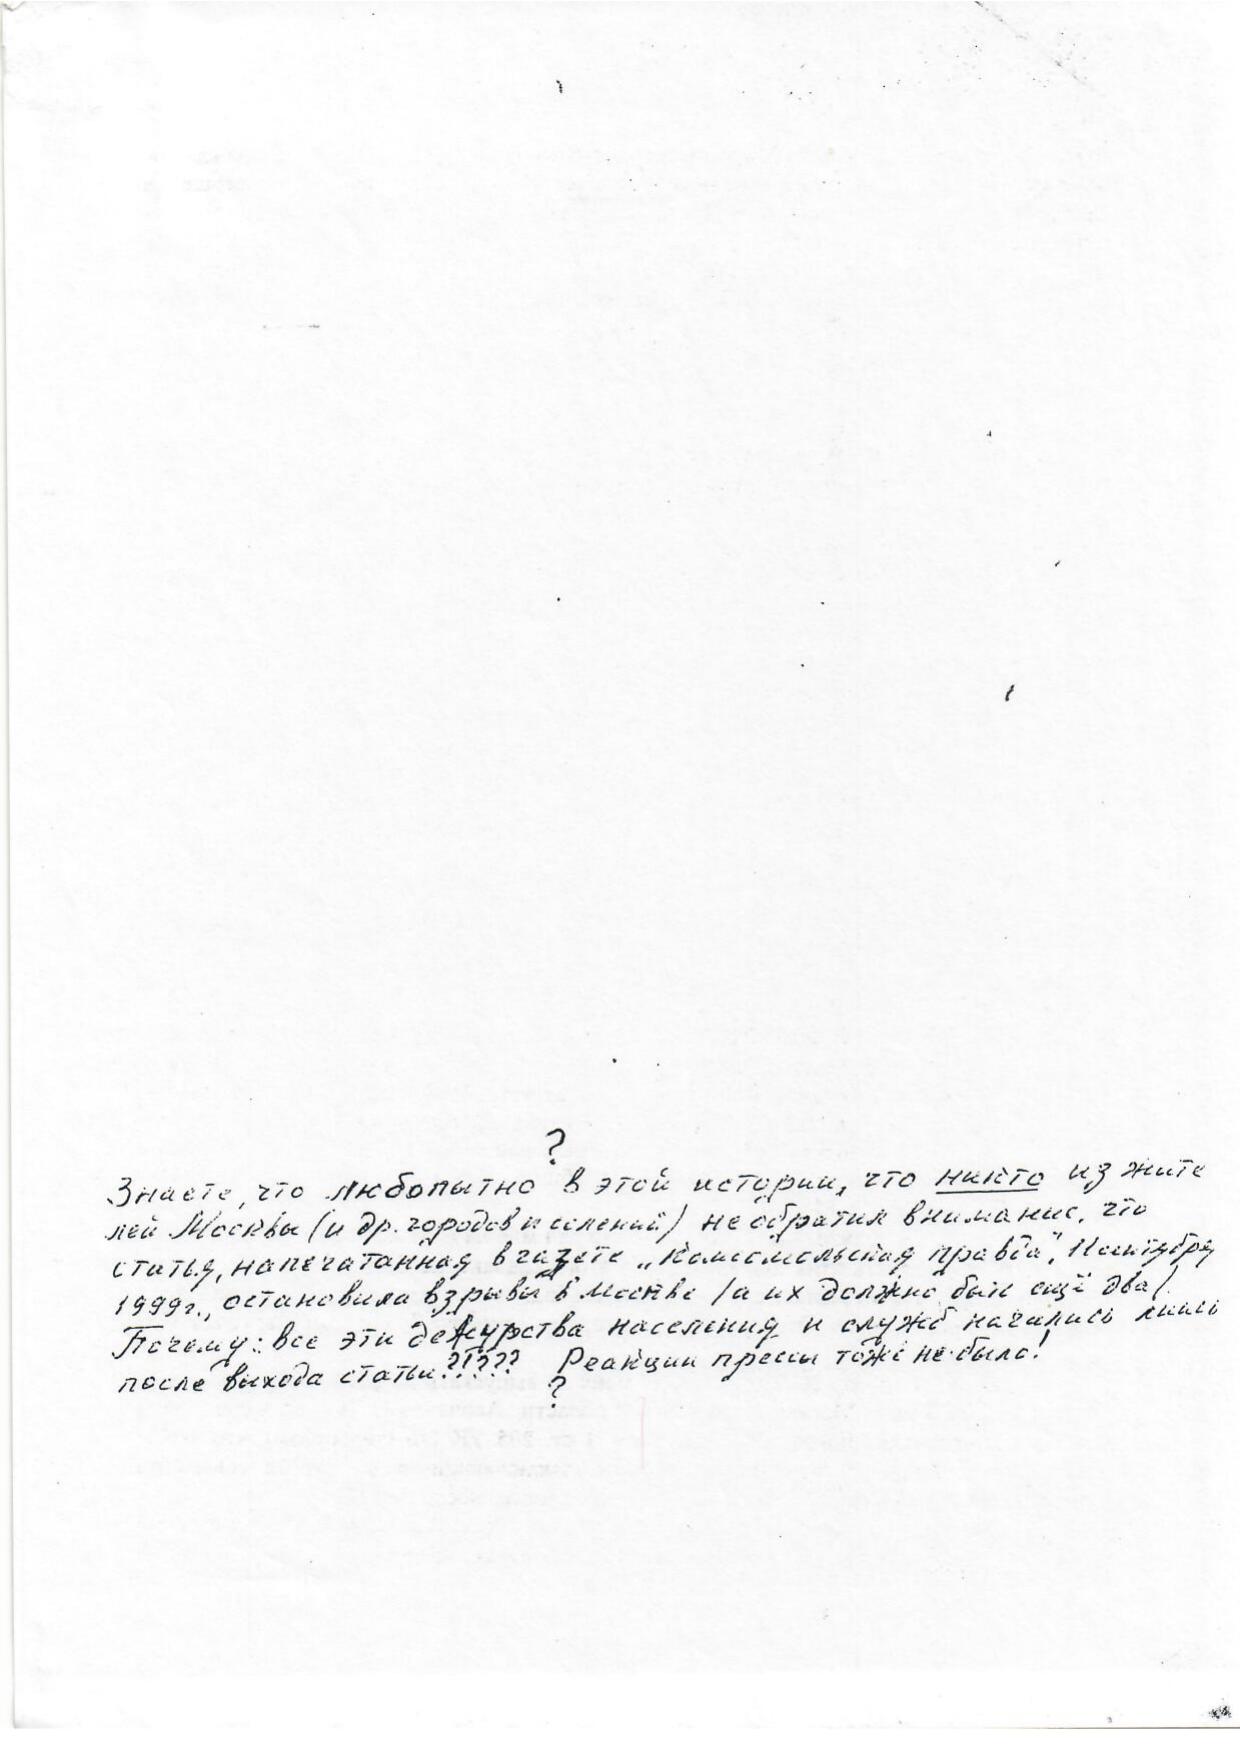 ?
Знаете, что любопытно в этой истории, что никто из жите
лей Москвы (и др. городов и селений) не обратил внимание, что
статья, напечатанная в газете „Комсомольская правда",
1999г., остановила взрывы в Москве /а их должно быть ещё два/.
Почему: все эти дежурства населения и служб начались лишь
после выхода статьи?!??? Реакции прессы тоже не было!
?